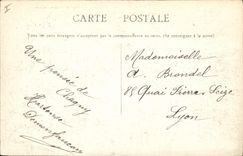 CARTE POSTALE
Tous les pays étrangers n'acceptent pas la correspondance au recto. (Se renseigner à la poste)
Une pensée de
Chagny
Mademoiselle
A. Brondel
Quai Pierre Seize
Lyon